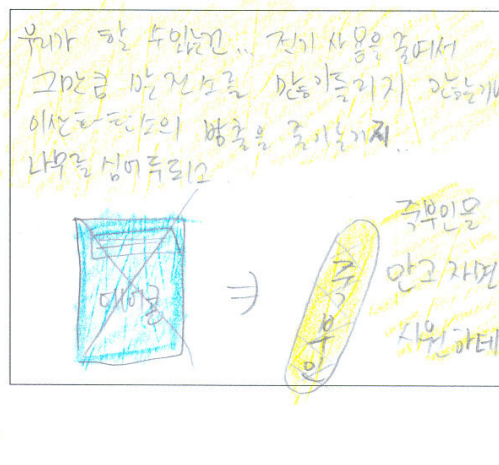 우리가 할 수 있는건... 전기 사용을 줄여서
그만큼 발전소를 만들이 돌리지 않는거
이산화탄소의 방출을 줄이는거지..
나무를 심어두되고
에어콘
⇒
죽부인
죽부인을
안고 자면
시원하데